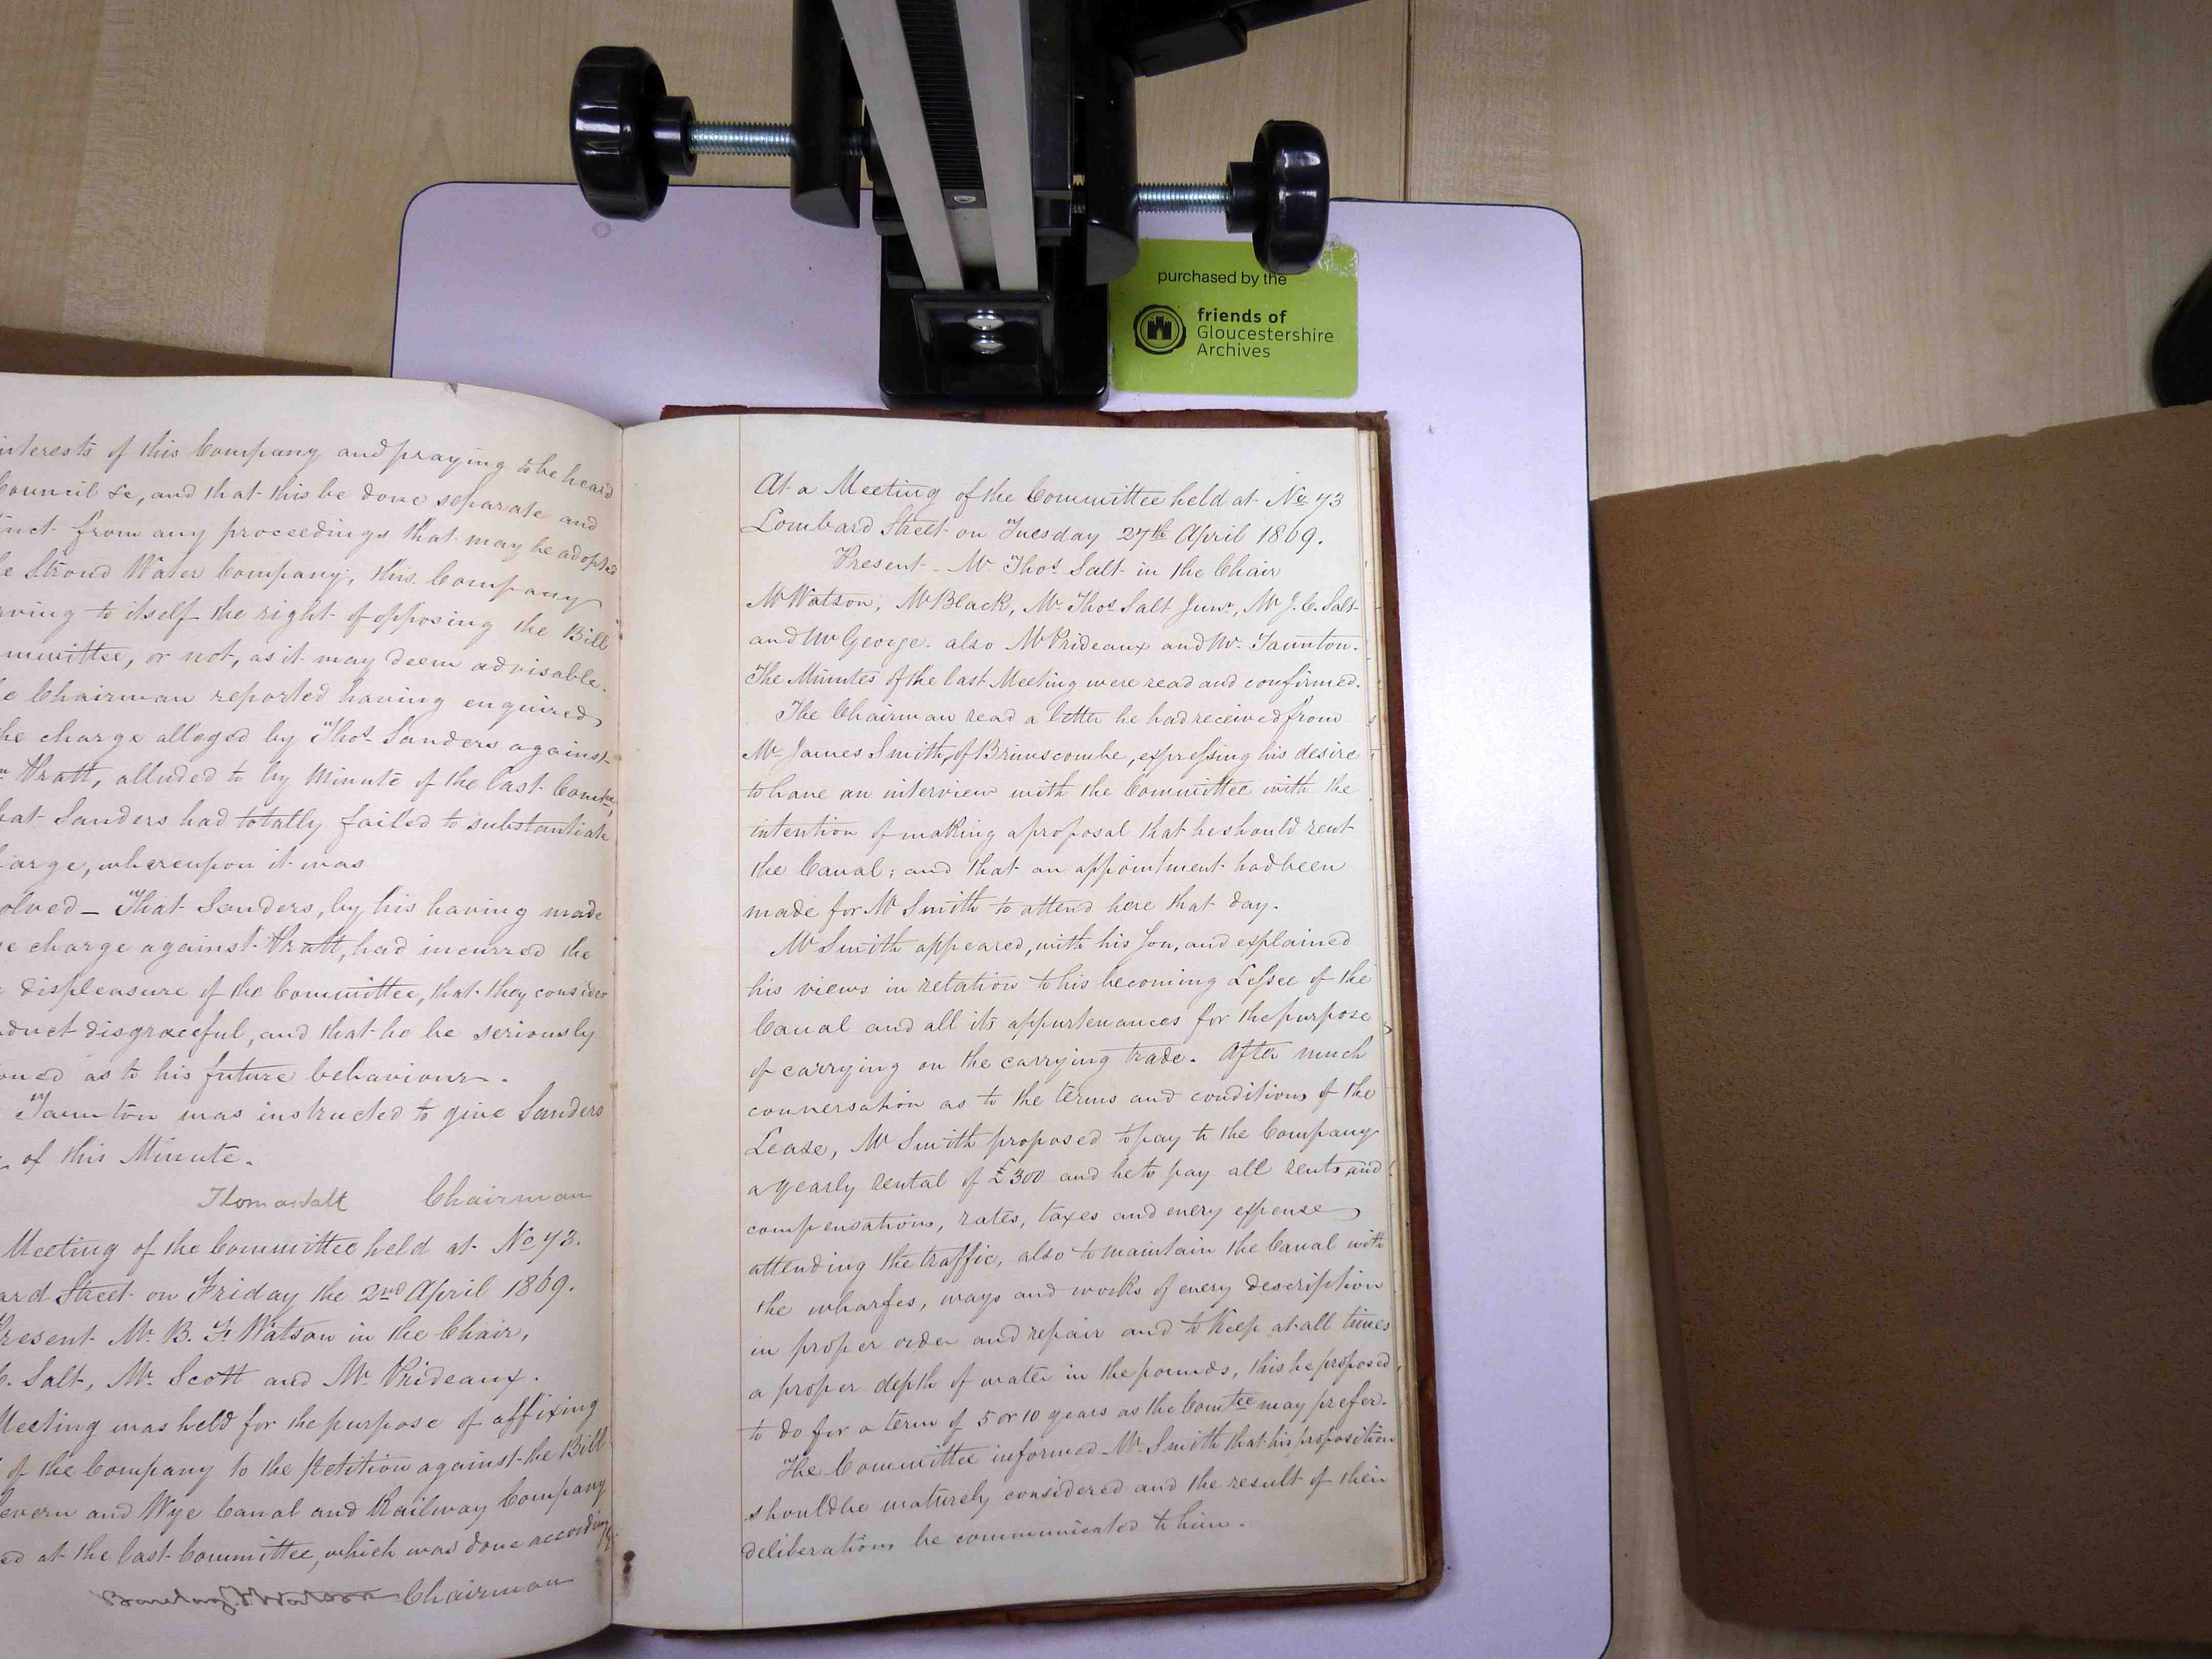 purchased by the
friends of
Gloucestershire
Archives
interests of this Company and praying to be heard
Council &c, and that this be done separate and
from any proceedings that may be adopted
Stroud Water Company, this Company
to itself the right of opposing the Bill
or not, as it may deem advisable.
Chairman reported having enquired
charge alleged by Thos. Sanders against
Pratt, alluded to by Minute of the last Comtee,
Sanders had totally failed to substantiate
whereupon it was
That Sanders, by his having made
charge against Pratt, had incurred the
displeasure of the Committee, that they consider
disgraceful, and that he be seriously
as to his future behaviour.
Taunton was instructed to give Sanders
of this Minute.
Thomas Salt Chairman
Meeting of the Committee held at No 73.
Street on Friday the 2nd April 1869.
Present Mr. B. F. Watson in the Chair,
Salt, Mr. Scott and Mr. Prideaux.
Meeting was held for the purpose of affixing
of the Company to the Petition against the Bill
and Wye Canal and Railway Company
at the last Committee, which was done
Chairman
At a Meeting of the Committee held at No 73
Lombard Street on Tuesday 27th April 1869.
Present - Mr Thos. Salt in the Chair
Mr Watson, Mr Black, Mr Thos Salt Junr, Mr J. C. Salt
and Mr George. also Mr Prideaux and Mr. Taunton.
The Minutes of the last Meeting were read and confirmed.
The Chairman read a letter he had received from
Mr James Smith, of Brimscombe, expressing his desire
to have an interview with the Committee with the
intention of making a proposal that he should rent
the Canal; and that an appointment had been
made for Mr Smith to attend here that day.
Mr Smith appeared, with his Son, and explained
his views in relation to his becoming Lessee of the
Canal and all its appurtenances for the purpose
of carrying on the carrying trade. After much
conversation as to the terms and conditions of the
Lease, Mr Smith proposed to pay to the Company
a yearly rental of £300 and he to pay all rents and
compensations, rates, taxes and every expense
attending the traffic, also to maintain the Canal with
the wharfes, ways and works of every description
in proper order and repair and to keep at all times
a proper depth of water in the pounds, this he proposed
to do for a term of 5 or 10 years as the Comtee may prefer.
The Committee informed Mr. Smith that his proposition
should be maturely considered and the result of their
deliberations be communicated to him.